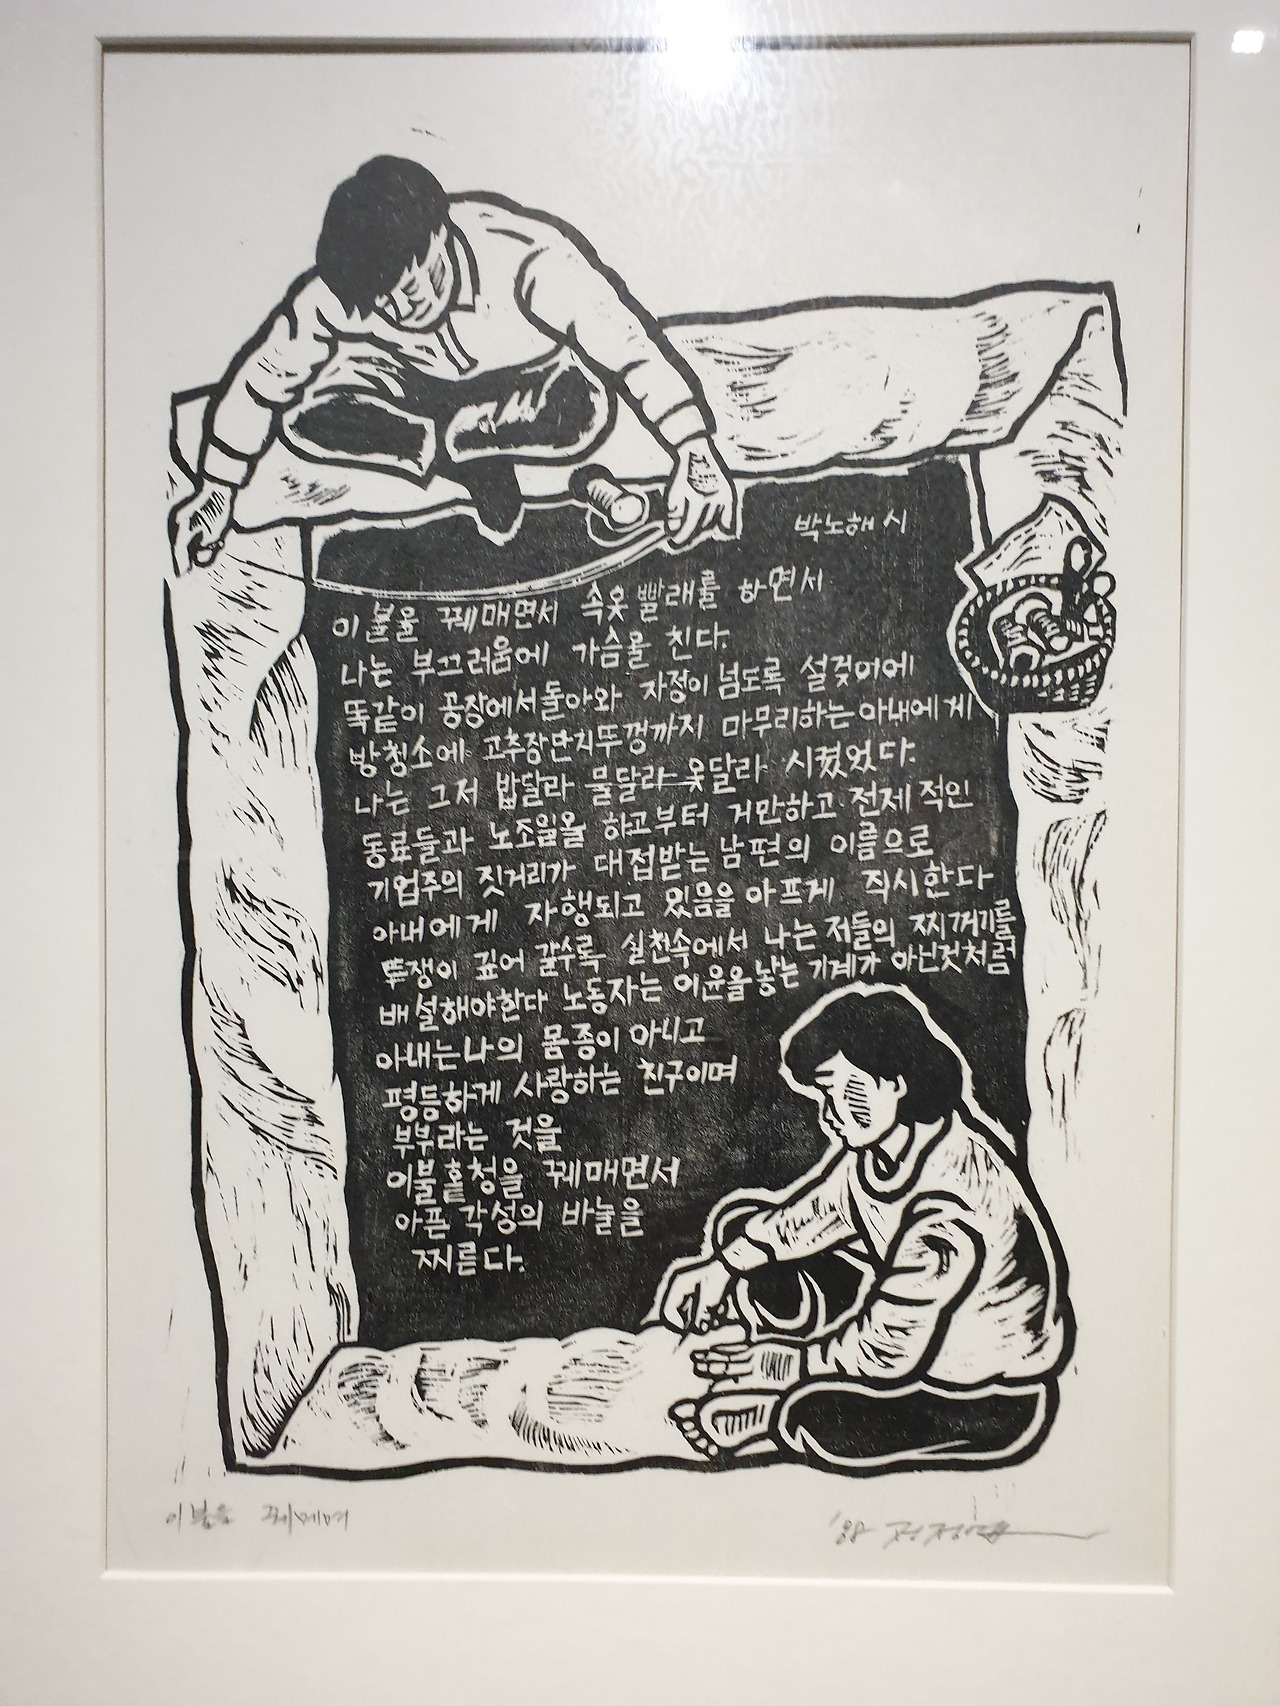 박노해 시
이불을 꿰매면서 속옷 빨래를 하면서
나는 부끄러움에 가슴을 친다.
똑같이 공장에서돌아와 자정이 넘도록 설겆이에
방청소에 고추장단지뚜껑까지 마무리하는 아내에게
나는 그저 밥달라 물달라 옷달라 시켰었다.
동료들과 노조일을 하고부터 거만하고 전제적인
기업주의 짓거리가 대접받는 남편의 이름으로
아내에게 자행되고 있음을 아프게 직시한다
투쟁이 깊어 갈수록 실천속에서 나는 저들의 찌꺼기를
배설해야한다 노동자는 이윤을 낳는 기계가 아닌것처럼
아내는 나의 몸종이 아니고
평등하게 사랑하는 친구이며
부부라는 것을
이불홑청을 꿰매면서
아픈 각성의 바늘을
찌른다.
이불을 꿰매며
'88